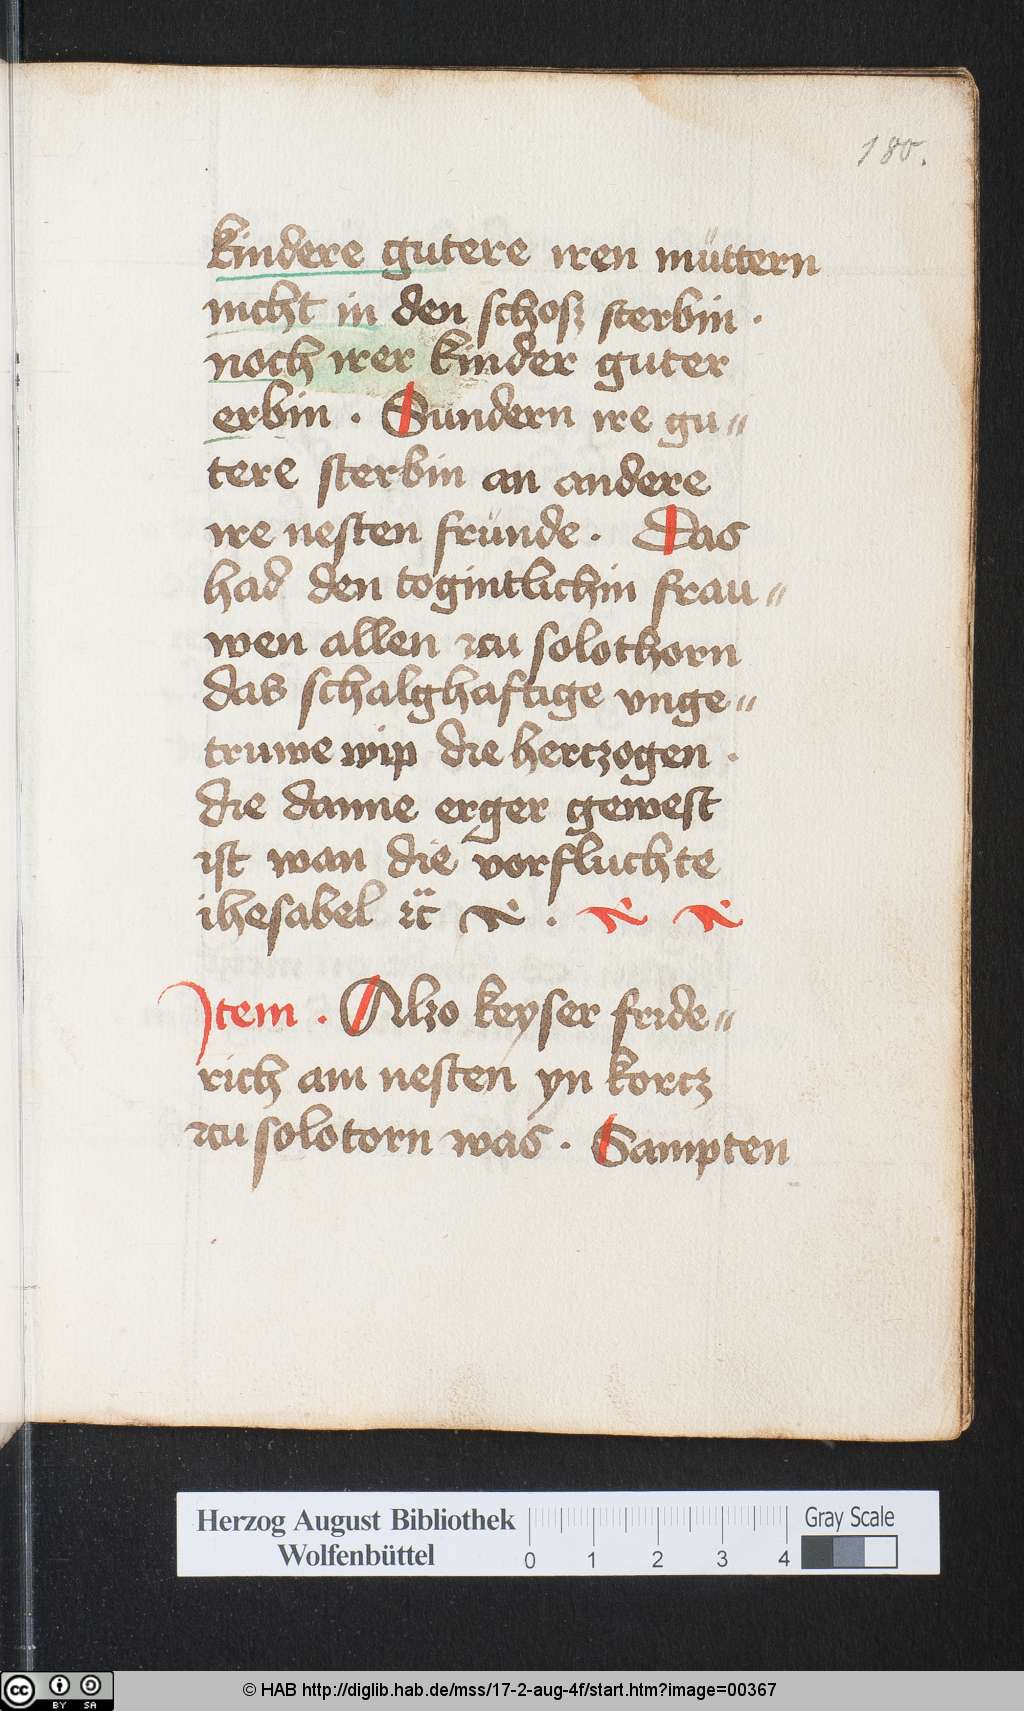 180.
kindere gutere iren müttern
nicht in den schosz sterbin .
noch irer kinder guter
erbin . Sundern ire gu〃
tere sterbin an andere
ire nesten fründe . Das
had den togintlichin frau〃
wen allen zcu solothorn
das schalghaftige vnge〃
truwe wip die hertzogen .
die danne erger gewest
ist wan die vorfluchte
ihesabel ꝛc̈ .
Item . Alzo keyser fride〃
rich am nesten yn kortz
zcu solotorn was . Sampten
Herzog August Bibliothek
Wolfenbüttel
0 1 2 3 4
Gray Scale
cc BY SA
© HAB http://diglib.hab.de/mss/17-2-aug-4f/start.htm?image=00367